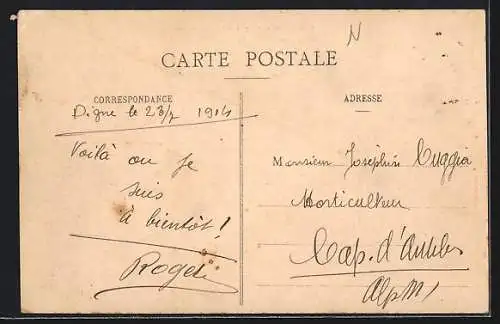 N
CARTE POSTALE
CORRESPONDANCE
Digne le 23/7 1914
Voilà ou je
suis
à bientôt !
Roger
ADRESSE
Monsieur Josephin Cuggia
Horticulteur
Cap. d'Antibes
Alp M